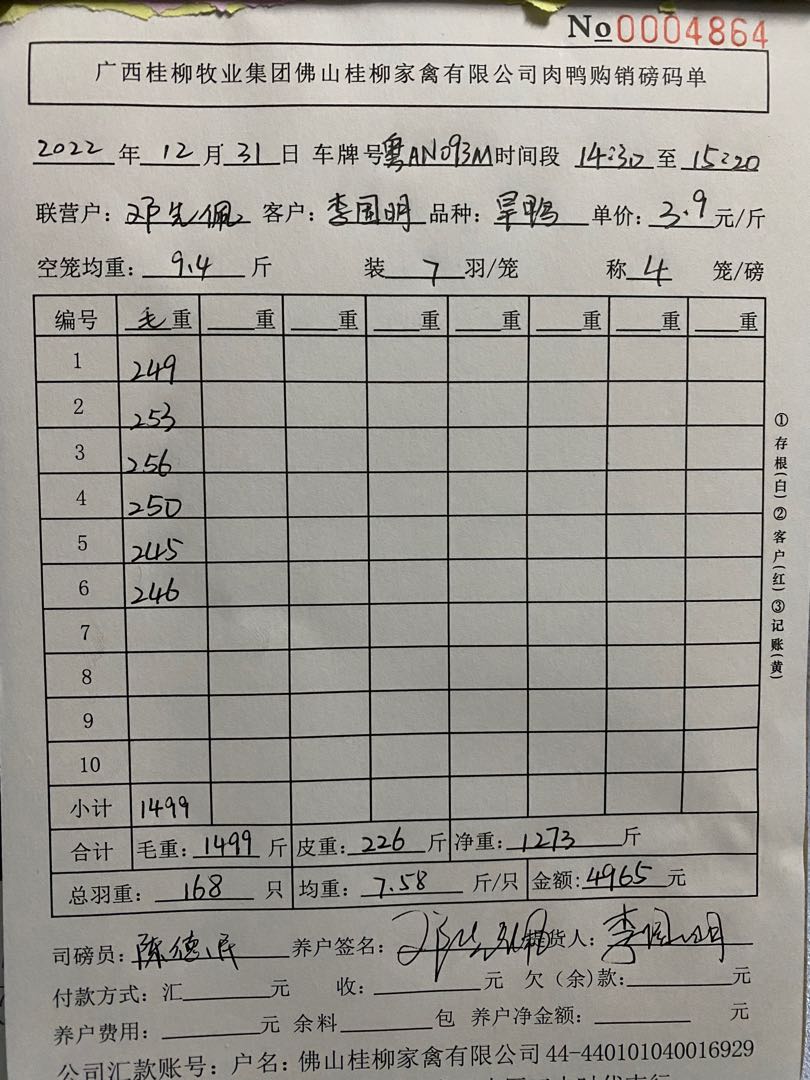 No0004864
广西桂柳牧业集团佛山桂柳家禽有限公司肉鸭购销磅码单
2022年12月31日 车牌号粤AN093M时间段 14:30至15:20
联营户：邓先佩 客户：李国明 品种：旱鸭 单价：3.9元/斤
空笼均重：9.4斤 装7羽/笼 称4笼/磅
编号 毛重 重 重 重 重 重 重 重
1 249
2 253
3 256
4 250
5 245
6 246
7
8
9
10
小计 1499
合计 毛重：1499斤 皮重：226斤 净重：1273斤
总羽重：168只 均重：7.58斤/只 金额：4965元
司磅员：陈德民 养户签名： 提货人：李国明
付款方式：汇 元 收： 元 欠（余）款： 元
养户费用： 元 余料 包 养户净金额： 元
公司汇款账号：户名：佛山桂柳家禽有限公司44-440101040016929
①存根(白)②客户(红)③记账(黄)